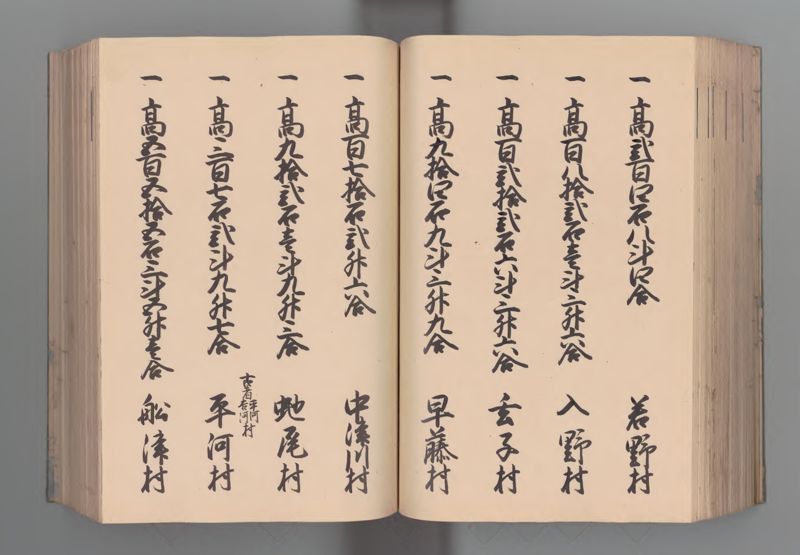 一 高貳百四石八斗四合 若野村
一 高百八拾貳石壱斗三升六合 入野村
一 高百貳拾貳石六斗三升六合 玄子村
一 高九拾四石九斗三升九合 早藤村
一 高百七拾石貳升六合 中津川村
一 高九拾貳石壱斗九升三合 蛇尾村
一 高三百七石貳斗九升七合 平河村
古者平河村
吉河村
一 高五百五拾五石三斗五升壱合 船津村